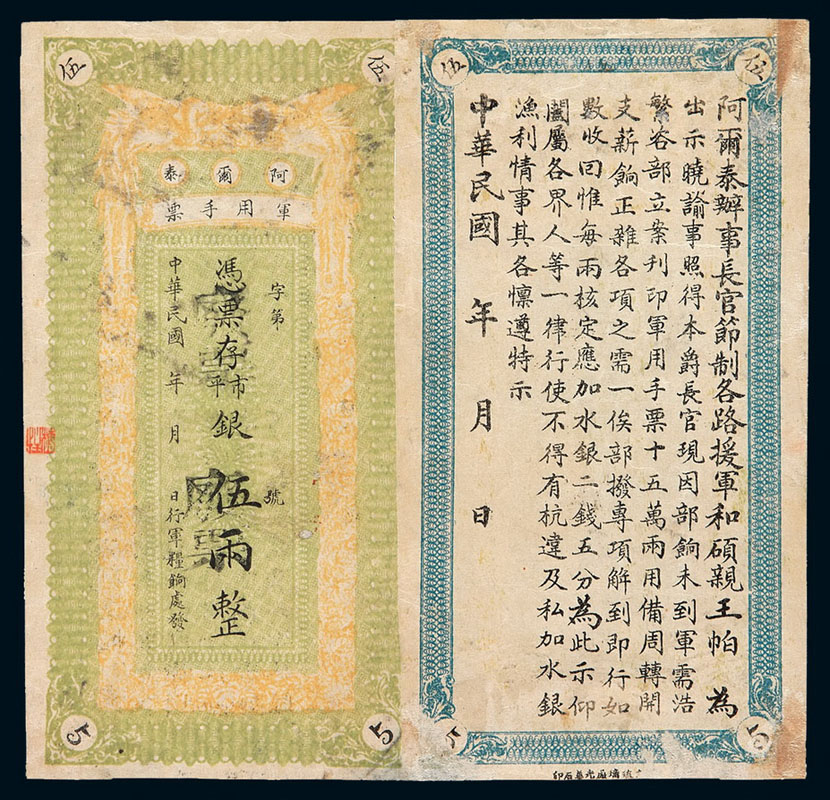 伍
伍
阿爾泰
軍用手票
字第
號
憑票存市平銀伍兩整
中華民國 年 月 日行軍糧餉處發
5
5
伍
伍
阿爾泰辦事長官節制各路援軍和碩親王帕 為
出示曉諭事照得本爵長官現因部餉未到軍需浩
繁咨部立案刋印軍用手票十五萬兩用備周轉開
支薪餉正雜各項之需一俟部撥專項解到即行如
數收回惟每兩核定應加水銀二錢五分為此示仰
闔屬各界人等一律行使不得有杭違及私加水銀
漁利情事其各懍遵特示
中華民國 年 月 日
5
5